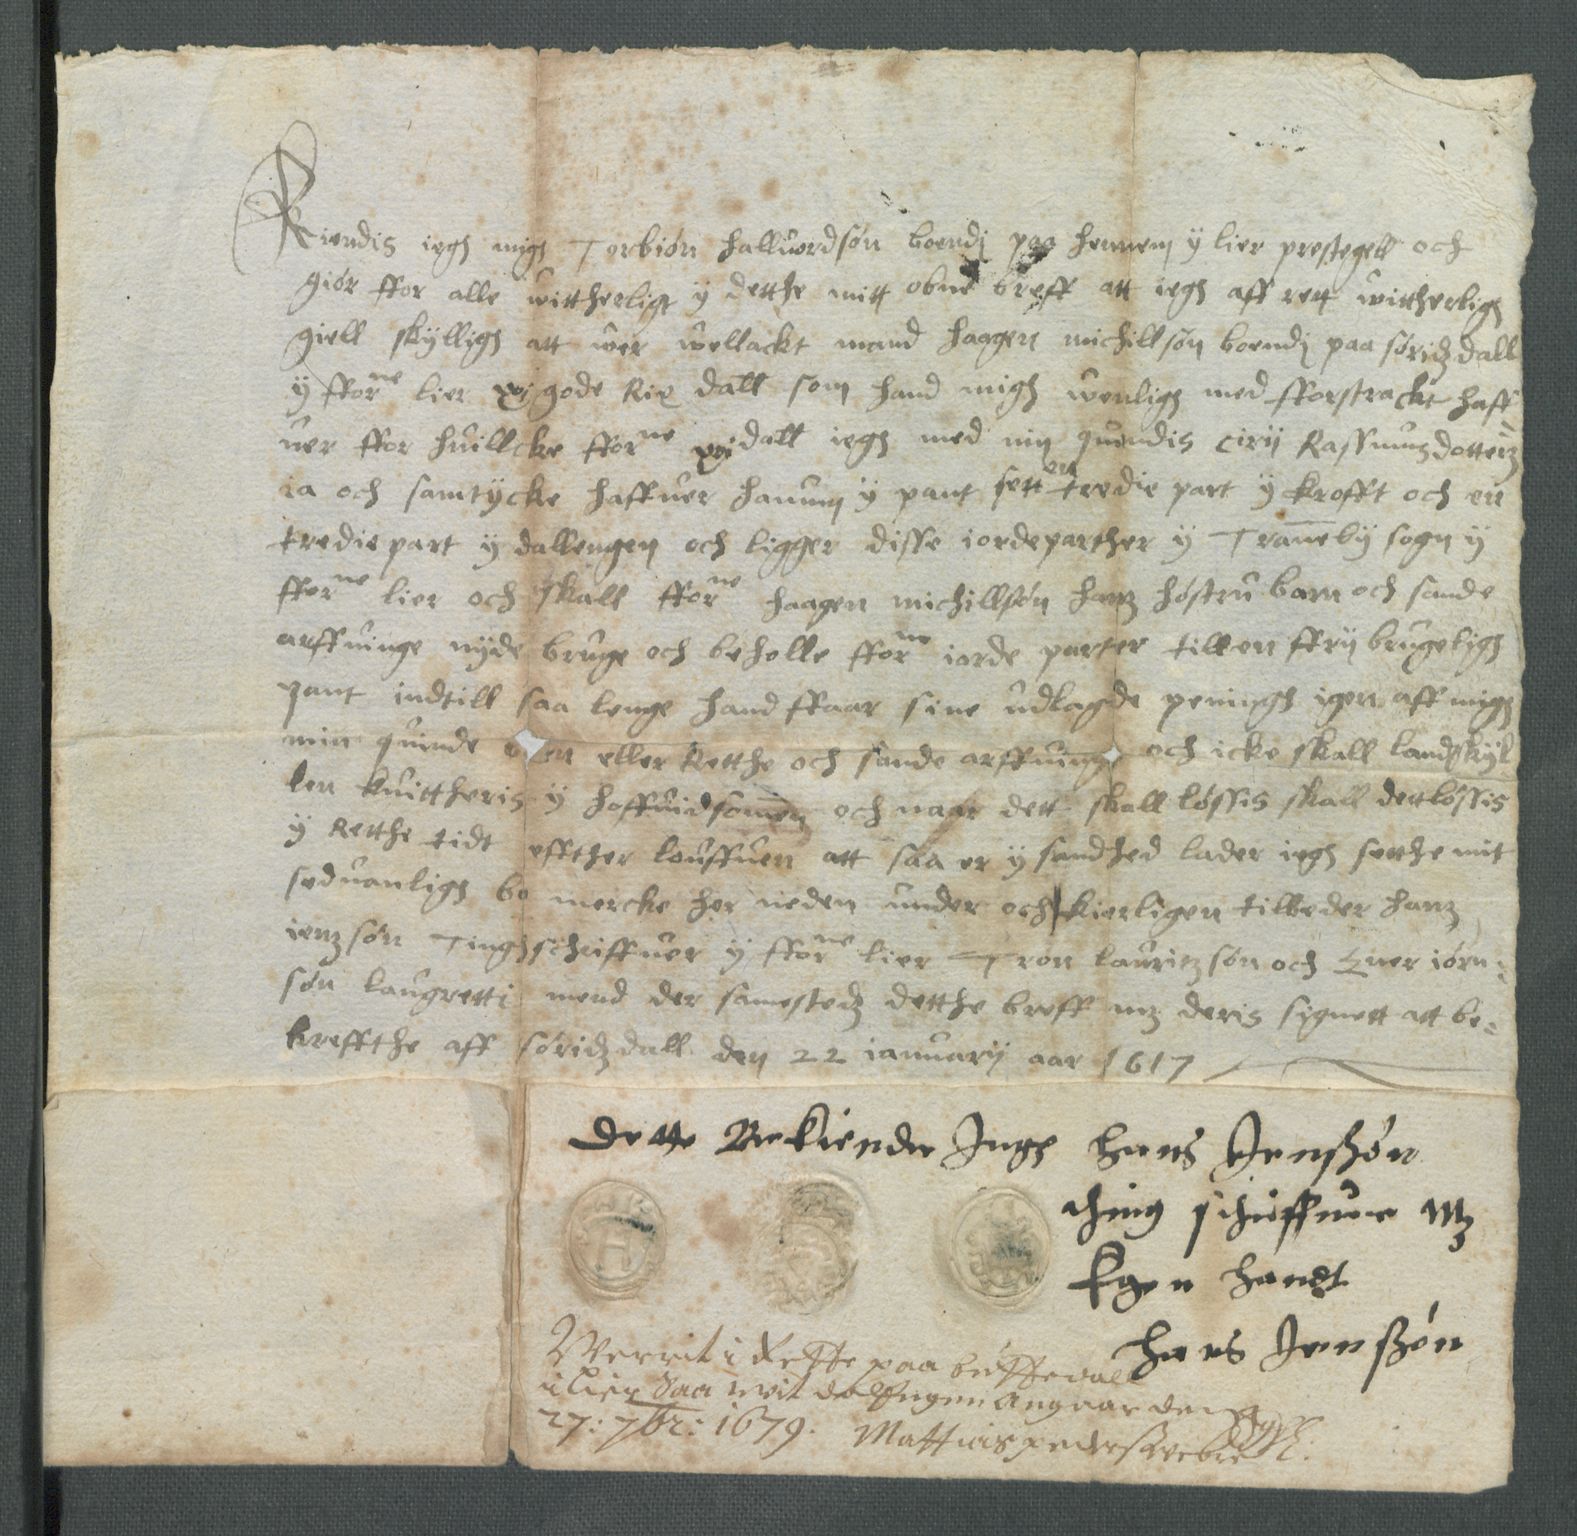 Kiendis iegh migh Torbiøn halluordsøn boendj paa hennem ÿ lier prestegell och
giør ffor alle wittherligt ÿ detthe mitt obne breff att iegh aff rett wittherligh
giell skÿlligh att wer wellackt mand haagen michillsøn boendj paa søridzdall
ÿ fforne lier xj gode Rix dall som hand migh wenligh med fforstrackt haff
uer ffor huillcke fforne xj dall iegh med min quendis cirij Rassmusdotterz
ia och samtÿcke haffuer hanum ÿ pant sett en tredie part ÿ krofft och en
tredie part ÿ dallengen och ligger disse iordeparther ÿ Tranebÿ sogn ÿ
fforne lier och skall fforne haagen michillsøn hanz høstru barn och sande
arffuinge nÿde bruge och beholle fforne iorde parter till en ffrij brugeligh
pant indtill saa lenge hand ffaar sine udlagde peningh igen aff migh
min quinde en eller Retthe och sande arffuinge och icke skall landskÿl
len kuittheris ÿ hoffuidsomen och naar dett skall løssis skall dett løssis
ÿ Retthe tidt effther louffuen att saa er ÿ sandhed lader iegh setthe mit
seduanligh bo mercke her neden under och kierligen tilbeder hanz
ienzsøn Tinghschriffuer ÿ fforne lier Tron lauritzsøn och Euer iørn-
søn laugretti mend der samestedz detthe breff mz deris signett att be-
kreffthe aff søridzdall den 22 januarij aar 1617
Dette Bekiender Jegh hans Jenssøn
thing schriffuer Mz
Egen handt
hans Jenssøn
Werrit i Rette paa buttedall
i lier Saa wit dallEngen Angaar den
27: 7br: 1679. Mattias peders